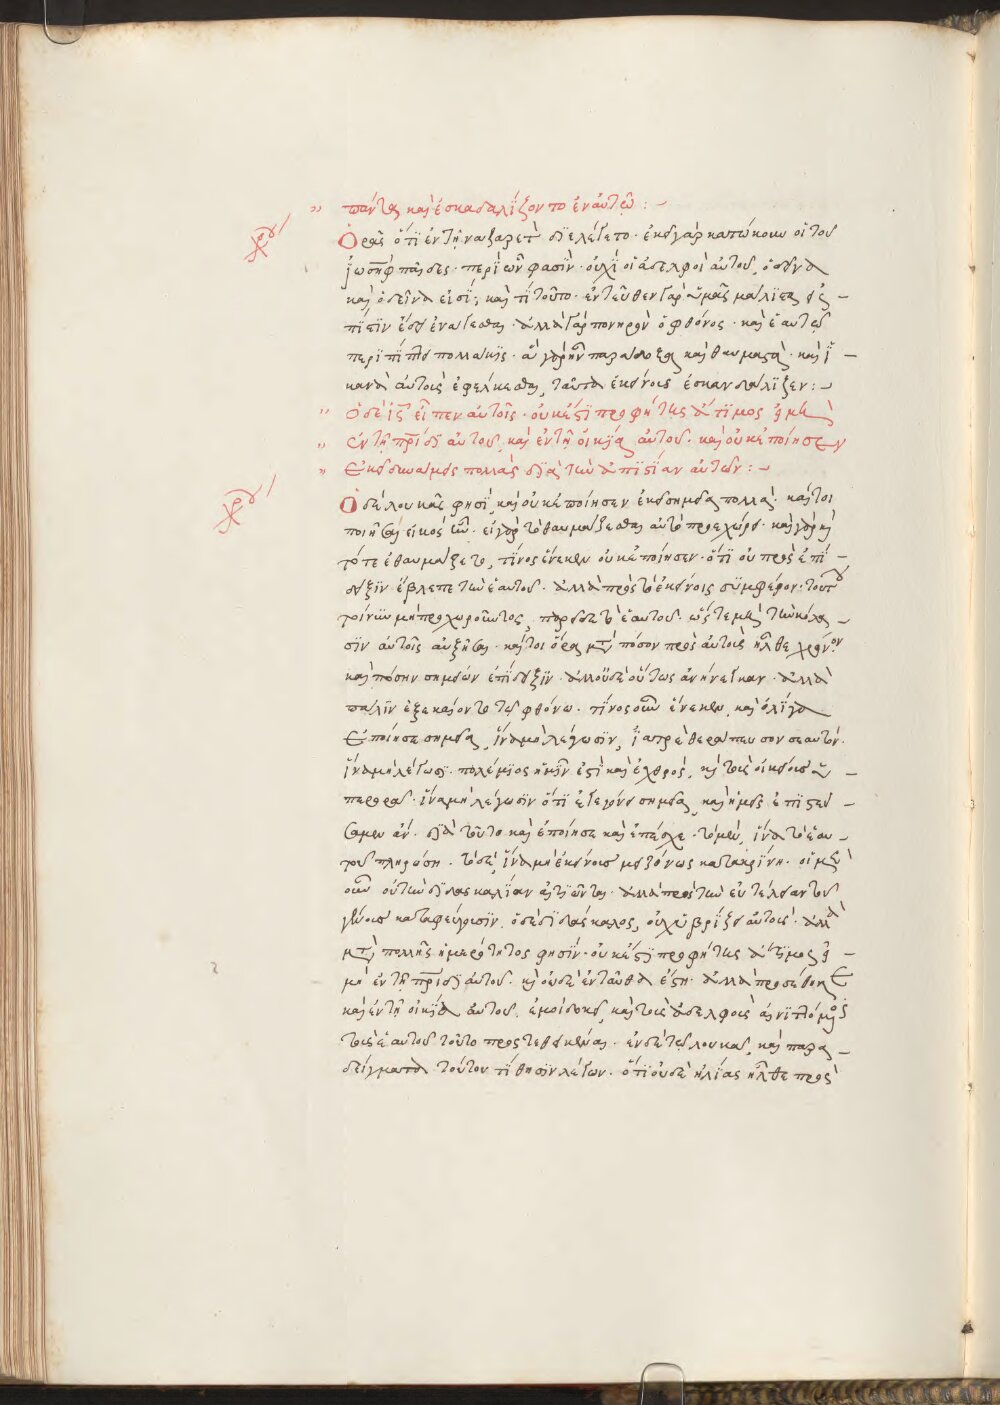 πάντα καὶ ἐσκανδαλίζοντο ἐν αὐτῷ :-
Ὁρᾷς ὅτι ἐν τῇ ναζαρὲτ διελέγετο · ἐκεῖ γὰρ κατώκουν οἱ τοῦ
ἰωσὴφ παῖδες · περὶ ὧν φασὶν · οὐχὶ οἱ ἀδελφοὶ αὐτοῦ, ὁ δεῖνα
καὶ ὁ δεῖνα εἰσί; καὶ τί τοῦτο · ἐντεῦθεν γὰρ ὑμᾶς μάλιστα εἰς
πίστιν ἔδει ἐνάγεσθαι · ἀλλὰ γὰρ πονηρὸν ὁ φθόνος · καὶ ἑαυτῷ
περιπίπτει πολλάκις · ἃ γὰρ ἦν παράδοξα καὶ θαυμαστὰ · καὶ ἱ
κανὰ αὐτοὺς ἐφέλκεσθαι, ταῦτα ἐκείνους ἐσκανδάλιζεν :-
Ὁ δὲ ἰς εἶπεν αὐτοῖς · οὐκ ἔστι προφήτης ἄτιμος εἰ μὴ
ἐν τῇ πρίδι αὐτοῦ, καὶ ἐν τῇ οἰκίᾳ αὐτοῦ · καὶ οὐκ ἐποίησεν
ἐκεῖ δυνάμεις πολλὰς διὰ τὴν ἀπιστίαν αὐτῶν :-
Ὁ δὲ λουκᾶς φησὶ, καὶ οὐκ ἐποίησεν ἐκεῖ σημεῖα πολλὰ · καίτοι
ποιῆσαι εἰκὸς ἦν · εἰ γὰρ τὸ θαυμάζεσθαι αὐτῷ προεχώρει · καὶ γὰρ καὶ
τότε ἐθαυμάζετο, τίνος ἕνεκεν οὐκ ἐποίησεν · ὅτι οὐ πρὸς ἐπί
δειξιν ἔβλεπε τὴν ἑαυτοῦ · ἀλλὰ πρὸς τὸ ἐκείνοις συμφέρον · τούτου
τοίνυν μὴ προχωροῦντος, παρεῖδε τὸ ἑαυτοῦ · ὥστε μὴ τὴν κόλα
σιν αὐτοῖς αὐξῆσαι · καίτοι ὅρα μετὰ πόσον πρὸς αὐτοὺς ἦλθε χρόνον
καὶ πόσην σημείων ἐπίδειξιν · ἀλλ' οὐδὲ οὕτως ἀνήνεγκαν · ἀλλὰ
πάλιν ἐξεκαίοντο τῷ φθόνῳ · τίνος οὖν ἕνεκεν, καὶ ὀλίγα
ἐποίησε σημεῖα, ἵνα μὴ λέγωσιν, ἰατρὲ θεράπευσον σεαυτόν ·
ἵνα μὴ λέγωσι · πολέμιος ἡμῖν ἐστὶ καὶ ἐχθρὸς, καὶ τοὺς οἰκείους ὑ
περορᾷ · ἵνα μὴ λέγωσιν ὅτι εἰ ἐγένετο σημεῖα, καὶ ἡμεῖς ἐπιστεύ
σαμεν ἄν · διὰ τοῦτο καὶ ἐποίησε καὶ ἐπέσχε · τὸ μὲν, ἵνα τὸ ἑαυ
τοῦ πληρώσῃ · τὸ δὲ, ἵνα μὴ ἐκείνους μειζόνως κατακρίνῃ · οἱ μὲν
οὖν οὐ τὴν διδασκαλίαν αἰτιῶνται · ἀλλὰ πρὸς τὴν εὐτέλειαν τοῦ
γένους καταφεύγουσιν · ὁ δὲ διδάσκαλος, οὐχ ὑβρίζει αὐτοὺς · ἀλλὰ
μετὰ πολλῆς ἡμερότητος φησίν · οὐκ ἔστι προφήτης ἄτιμος εἰ
μὴ ἐν τῇ πρίδι αὐτοῦ · καὶ οὐδὲ ἐνταῦθα ἔστη · ἀλλὰ προσέθηκε
καὶ ἐν τῇ οἰκίᾳ αὐτοῦ · ἐμοὶ δοκεῖ, καὶ τοὺς ἀδελφοὺς αἰνιττόμενος
τοὺς ἑαυτοῦ τοῦτο προστεθεικέναι · ἐν δὲ τῷ λουκᾷ, καὶ παρα
δείγματα τούτου τίθησιν λέγων · ὅτι οὐδὲ ἠλίας ἦλθε πρὸς